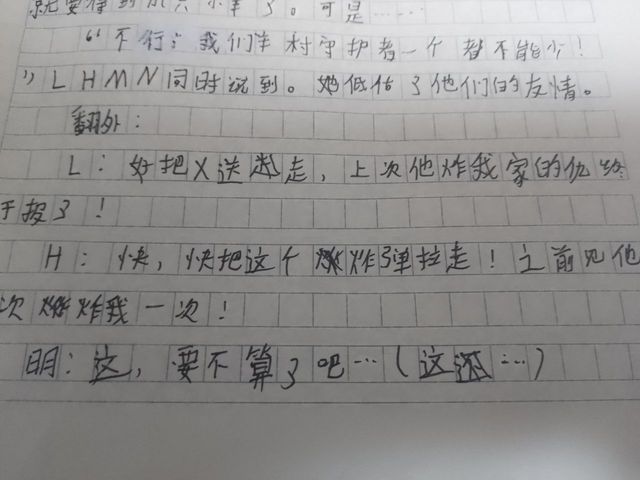 就要得到加六小羊了。可是……
“不行；我们羊村守护者一个都不能少！
”LHMN同时说到。她低估了他们的友情。
翻外：
L：好把X送走，上次他炸我家的仇终
于报了！
H：快，快把这个炸弹拉走！之前见他
次炸我一次！
明：这，要不算了吧…（这还…）